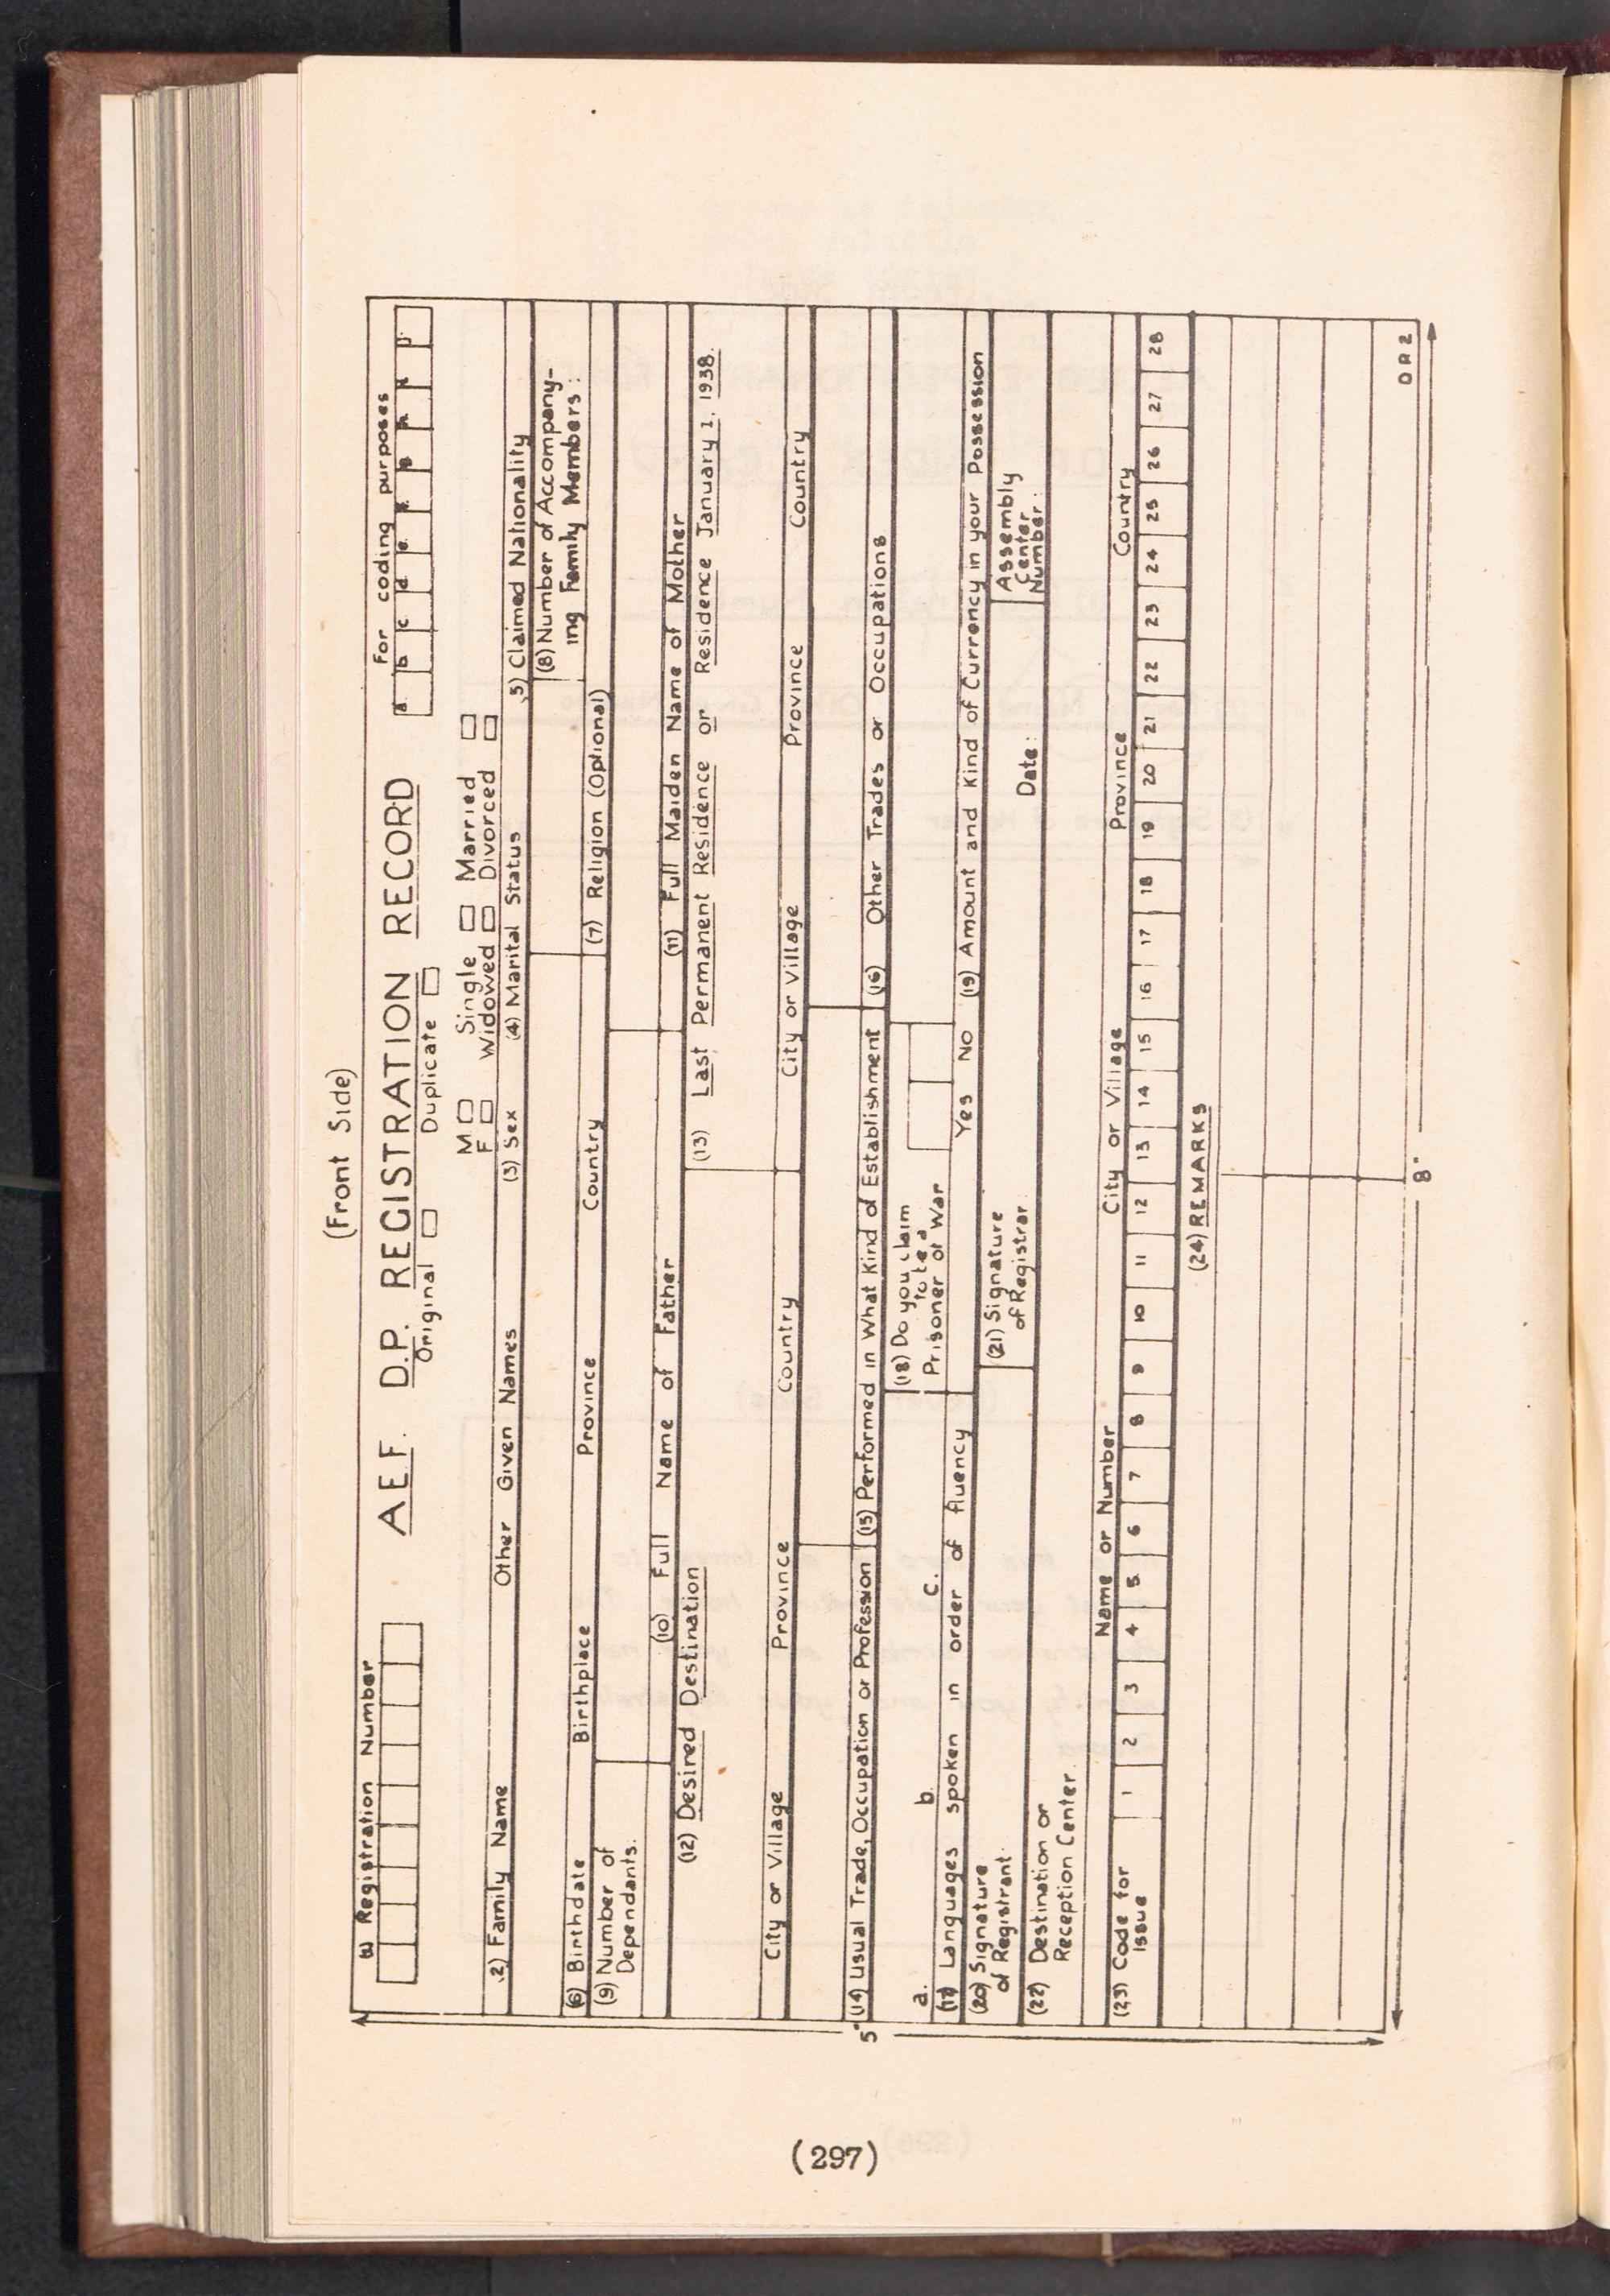 (Front Side)
(1) Registration Number
A.E.F. D.P. REGISTRATION RECORD
For coding purposes
a b c d e f g h i j
Original Duplicate
M Single Married
F Widowed Divorced
(2) Family Name Other Given Names (3) Sex (4) Marital Status (5) Claimed Nationality
(8) Number of Accompany-
ing Family Members:
(6) Birthdate Birthplace Province Country (7) Religion (Optional)
(9) Number of
Dependants:
(10) Full Name of Father (11) Full Maiden Name of Mother
(12) Desired Destination (13) Last Permanent Residence or Residence January 1, 1938.
City or Village Province Country City or Village Province Country
(14) Usual Trade, Occupation or Profession (15) Performed in What Kind of Establishment (16) Other Trades or Occupations
a. b. c.
(18) Do you claim
to be a
Prisoner of War
(17) Languages spoken in order of fluency Yes No (19) Amount and Kind of Currency in your Possession
(20) Signature
of Registrant:
(21) Signature
of Registrar:
Date:
Assembly
Center
Number:
(22) Destination or
Reception Center:
Name or Number City or Village Province Country
(23) Code for
issue
1 2 3 4 5 6 7 8 9 10 11 12 13 14 15 16 17 18 19 20 21 22 23 24 25 26 27 28
(24) REMARKS
DP2
5"
8"
(297)